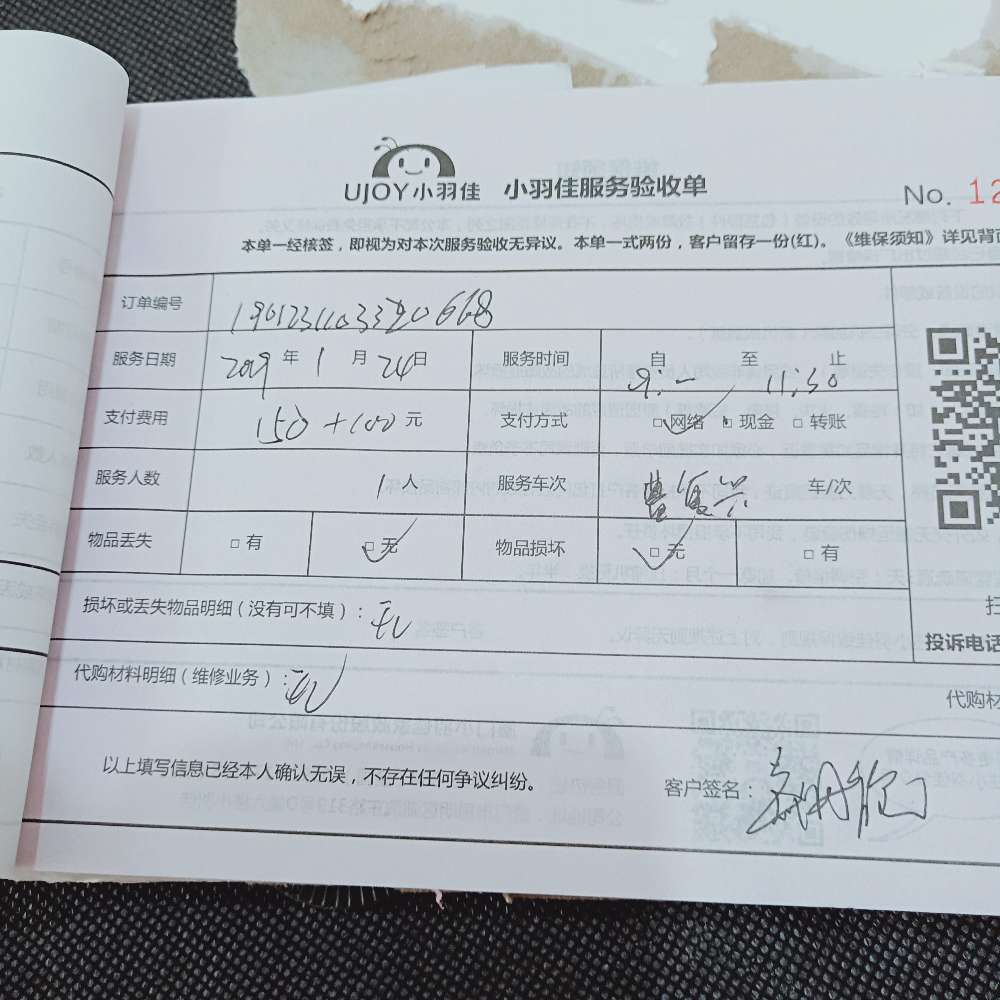 UJOY小羽佳 小羽佳服务验收单
No. 12
本单一经核签，即视为对本次服务验收无异议。本单一式两份，客户留存一份(红)。《维保须知》详见背面
订单编号
服务日期 2019 年 1 月 24 日 服务时间 自 至 止
9.一 11.30
支付费用 150+100 元 支付方式 □网络 □现金 □转账
服务人数 1 人 服务车次 车/次
物品丢失 □有 □无 物品损坏 □无 □有
损坏或丢失物品明细（没有可不填）：无
扫
投诉电话
代购材料明细（维修业务）：无
代购材
以上填写信息已经本人确认无误，不存在任何争议纠纷。
客户签名：